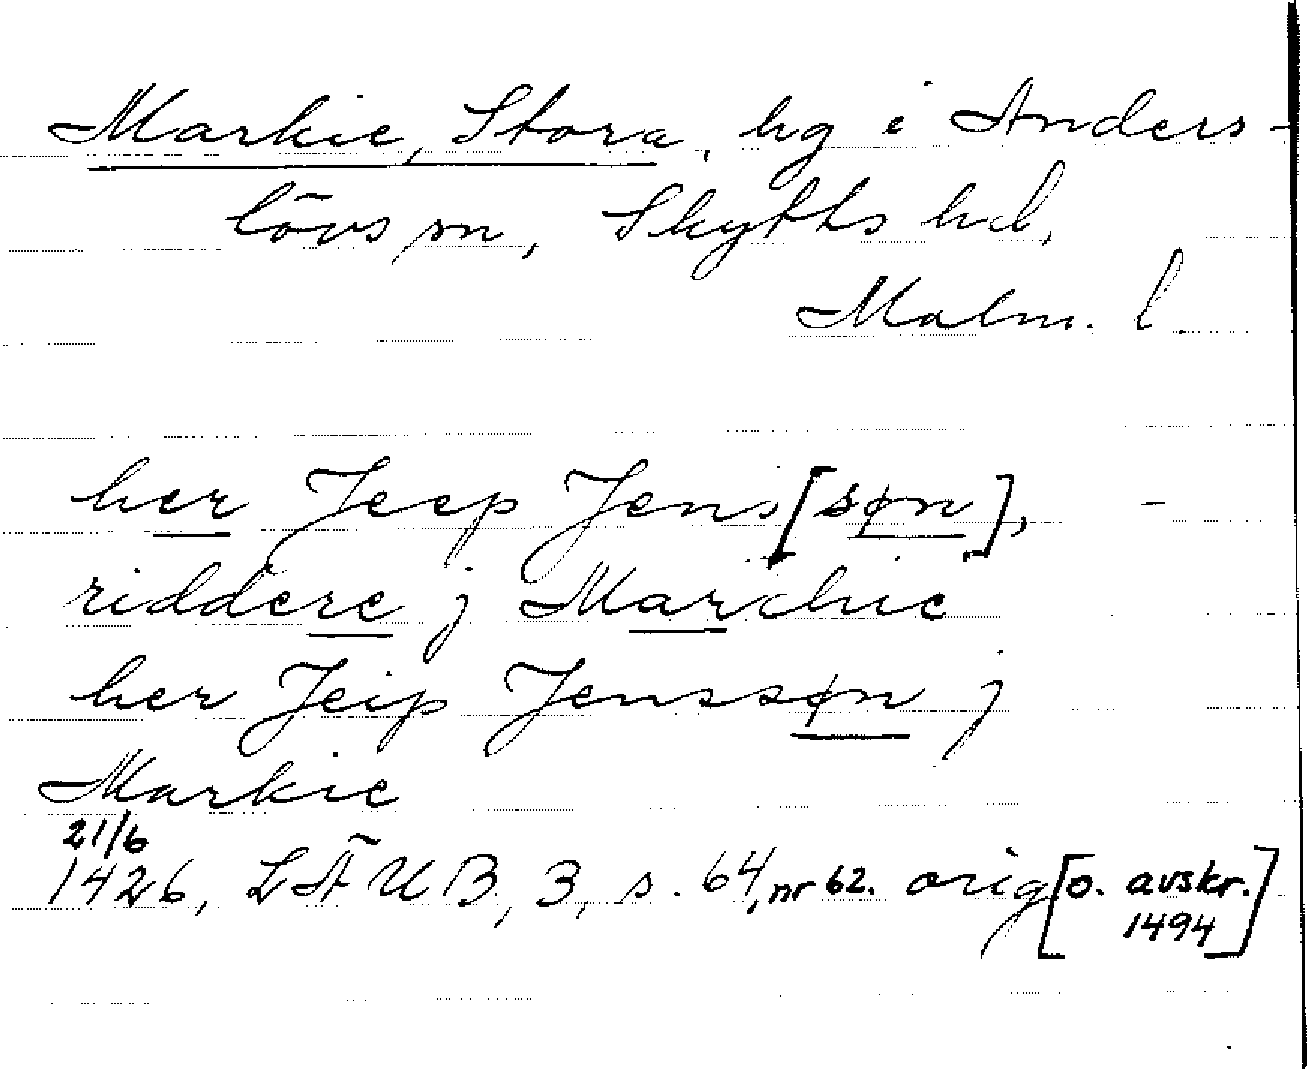 Markie, Stora, hg i Anders-
lövs sn, Skytts hd,
Malm. l
her Jeep Jens[søn], -
riddere j Marchie
her Jeip Jenssøn j
Markie
21/6
1426, LÄUB, 3, s. 64, nr 62. orig [o. avskr.
1494]